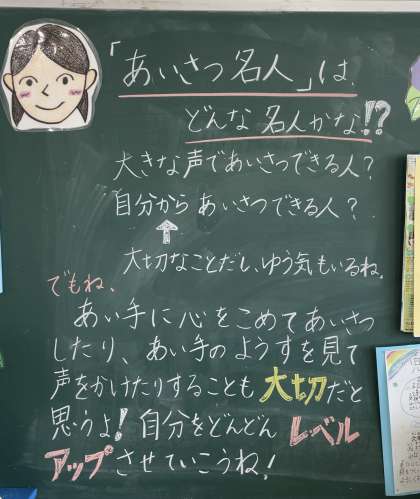 「あいさつ名人」は、
どんな名人かな!?
大きな声であいさつできる人?
自分からあいさつできる人?
大切なことだし、ゆう気もいるね。
でもね、
あい手に心をこめてあいさつ
したり、あい手のようすを見て
声をかけたりすることも大切だと
思うよ!自分をどんどんレベル
アップさせていこうね!